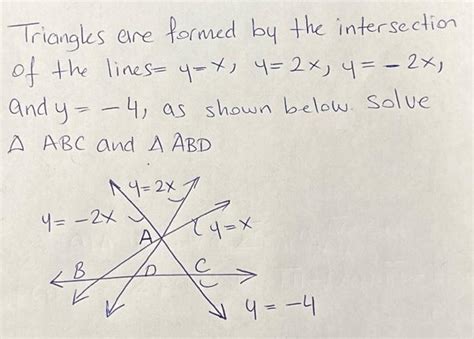 Triangles are formed by the intersection
of the lines= y=x, y=2x, y=-2x,
and y=-4, as shown below. Solve
Δ ABC and Δ ABD
y=2x
y=-2x
y=x
A
B
D
C
y=-4